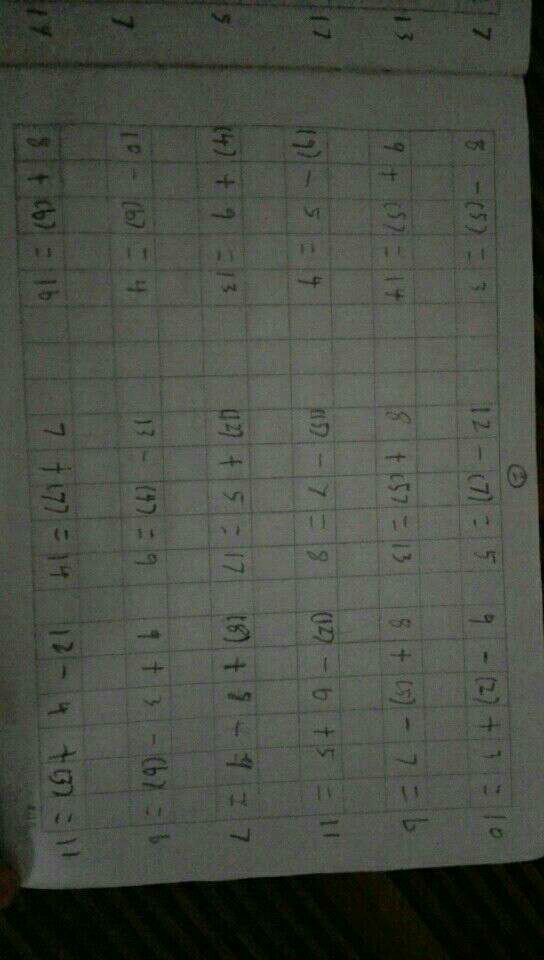 ②
7 8 - (5) = 3 12 - (7) = 5 9 - (2) + 3 = 10
13 9 + (5) = 14 8 + (5) = 13 8 + (5) - 7 = 6
17 (9) - 5 = 4 (15) - 7 = 8 (12) - 6 + 5 = 11
9 (4) + 9 = 13 (12) + 5 = 17 + 8 - 4 = 7
7 10 - (6) = 4 13 - (4) = 9 9 + 3 - (6) = 6
8 + = 16 7 + (7) = 14 12 - 4 + (3) = 11